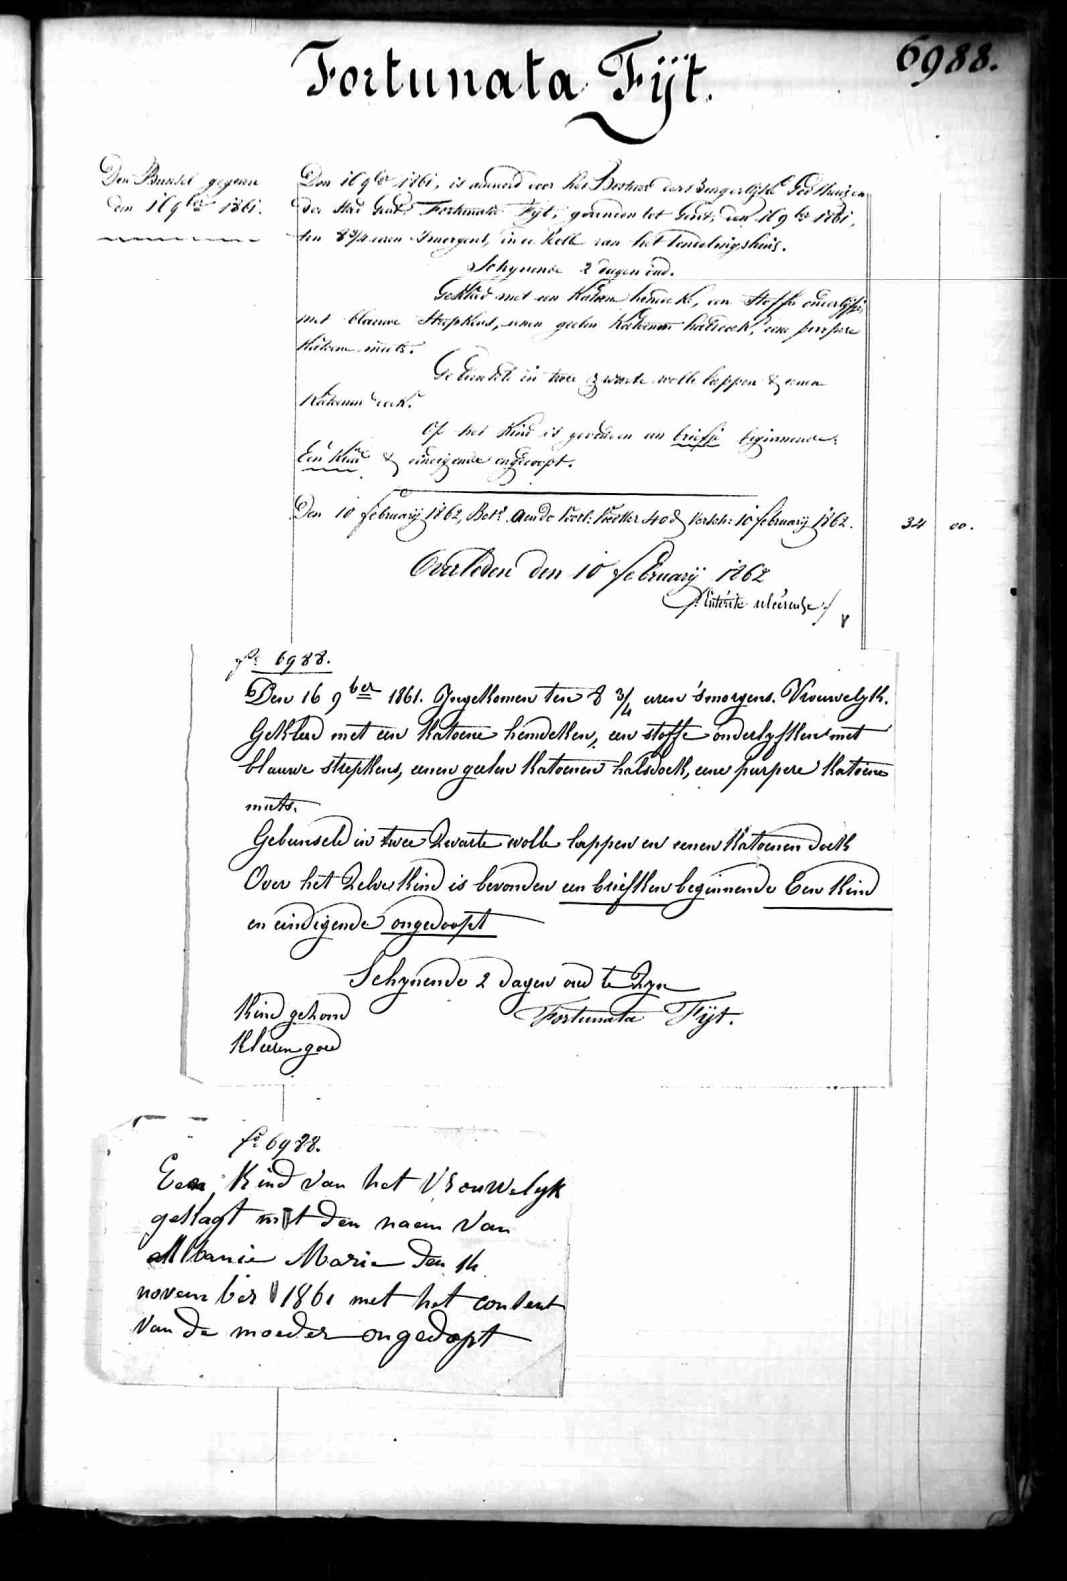 6988.
Fortunata Fijt.
Den Bussel gegeven
den 16 9ber 1861.
Den 16 9ber 1861, is aenveerd door het Bestuer der Burgerlijke Godshuizen
der Stad Gent Fortunata Fijt, gevonden tot Gent, den 16 9ber 1861,
ten 8 3/4 uren 's morgens, in de Rolle van het Vondelingshuis.
Schynende 2 dagen oud.
Gekleed met een Katoene hemdeke, een Stoffe onderlyfke
met blauwe Streepkens, eenen geelen Katoenen halsdoek, eene purpere
Katoene muts.
Gebunseld in twee zwarte wolle lappen & eenen
Katoenen doek.
Op het Kind is gevonden een briefje beginnende:
Een Kind & eindigende ongedoopt.
Den 10 februarij 1862, Bet. aen de Voedster 40 d 10 februarij 1862. 34 00.
Overleden den 10 februarij 1862
fo. 6988.
Den 16 9ber 1861. Ingekomen ten 8 3/4 uren 's morgens. Vrouwelyk.
Gekleed met een Katoene hemdeken, een stoffe onderlyfken met
blauwe strepkens, eenen geelen Katoenen halsdoek, eene purpere Katoene
muts.
Gebunseld in twee Zwarte wolle lappen en eenen Katoenen doek
Over het Zelve Kind is bevonden een briefken beginnende Een Kind
en eindigende ongedoopt
Schynende 2 dagen oud te Zyn
Kind gezond
Fortunata Fijt.
Kleeren goed
fo 6988.
Een Kind van het Vrouwelyk
geslagt met den naem van
Melanie Marie den 14
november 1861 met het consent
van de moeder ongedopt